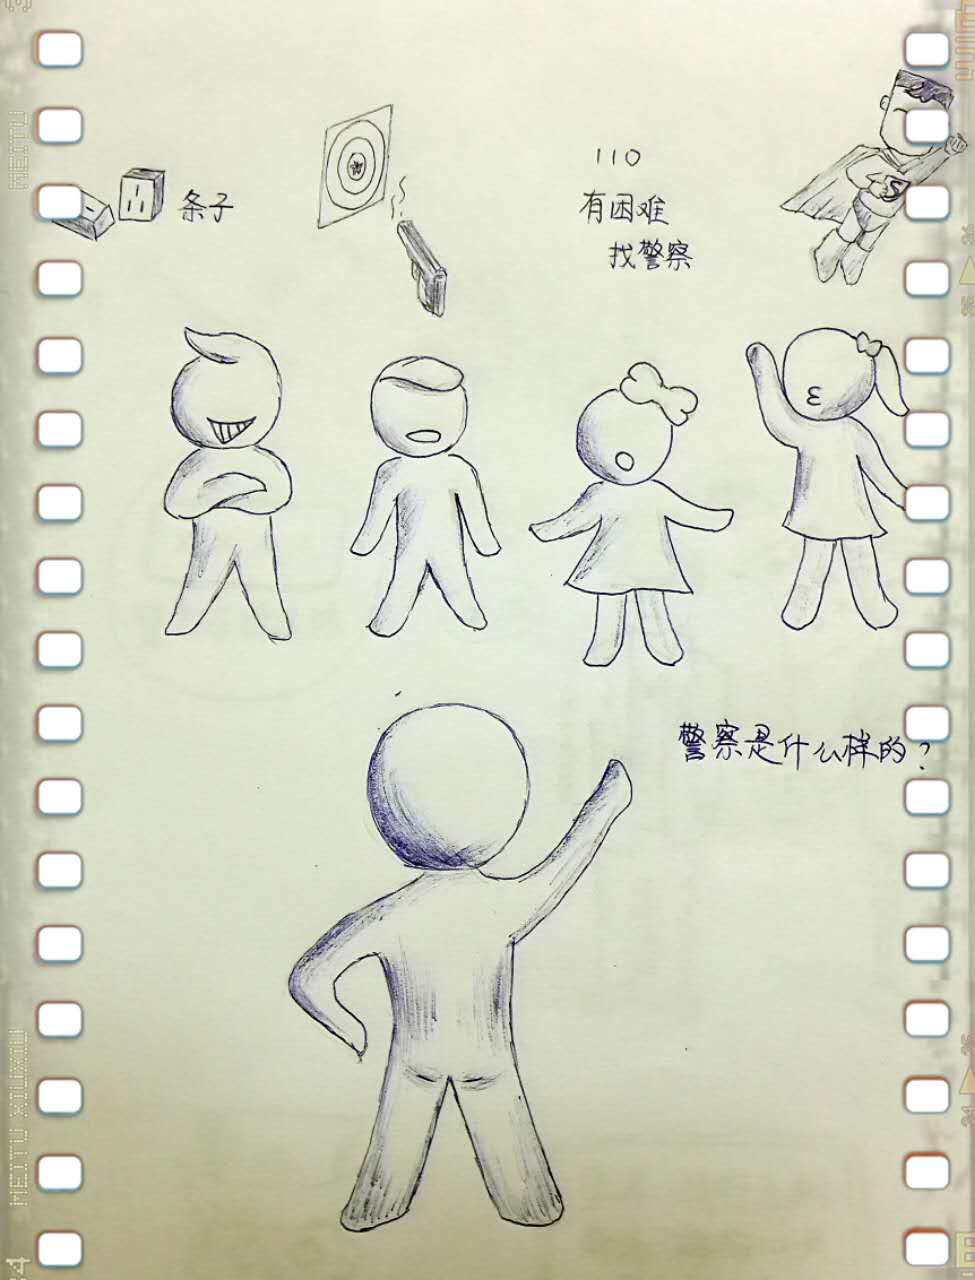 条子
110
有困难
找警察
警察是什么样的?
MEITU
MEITU XIUXIU